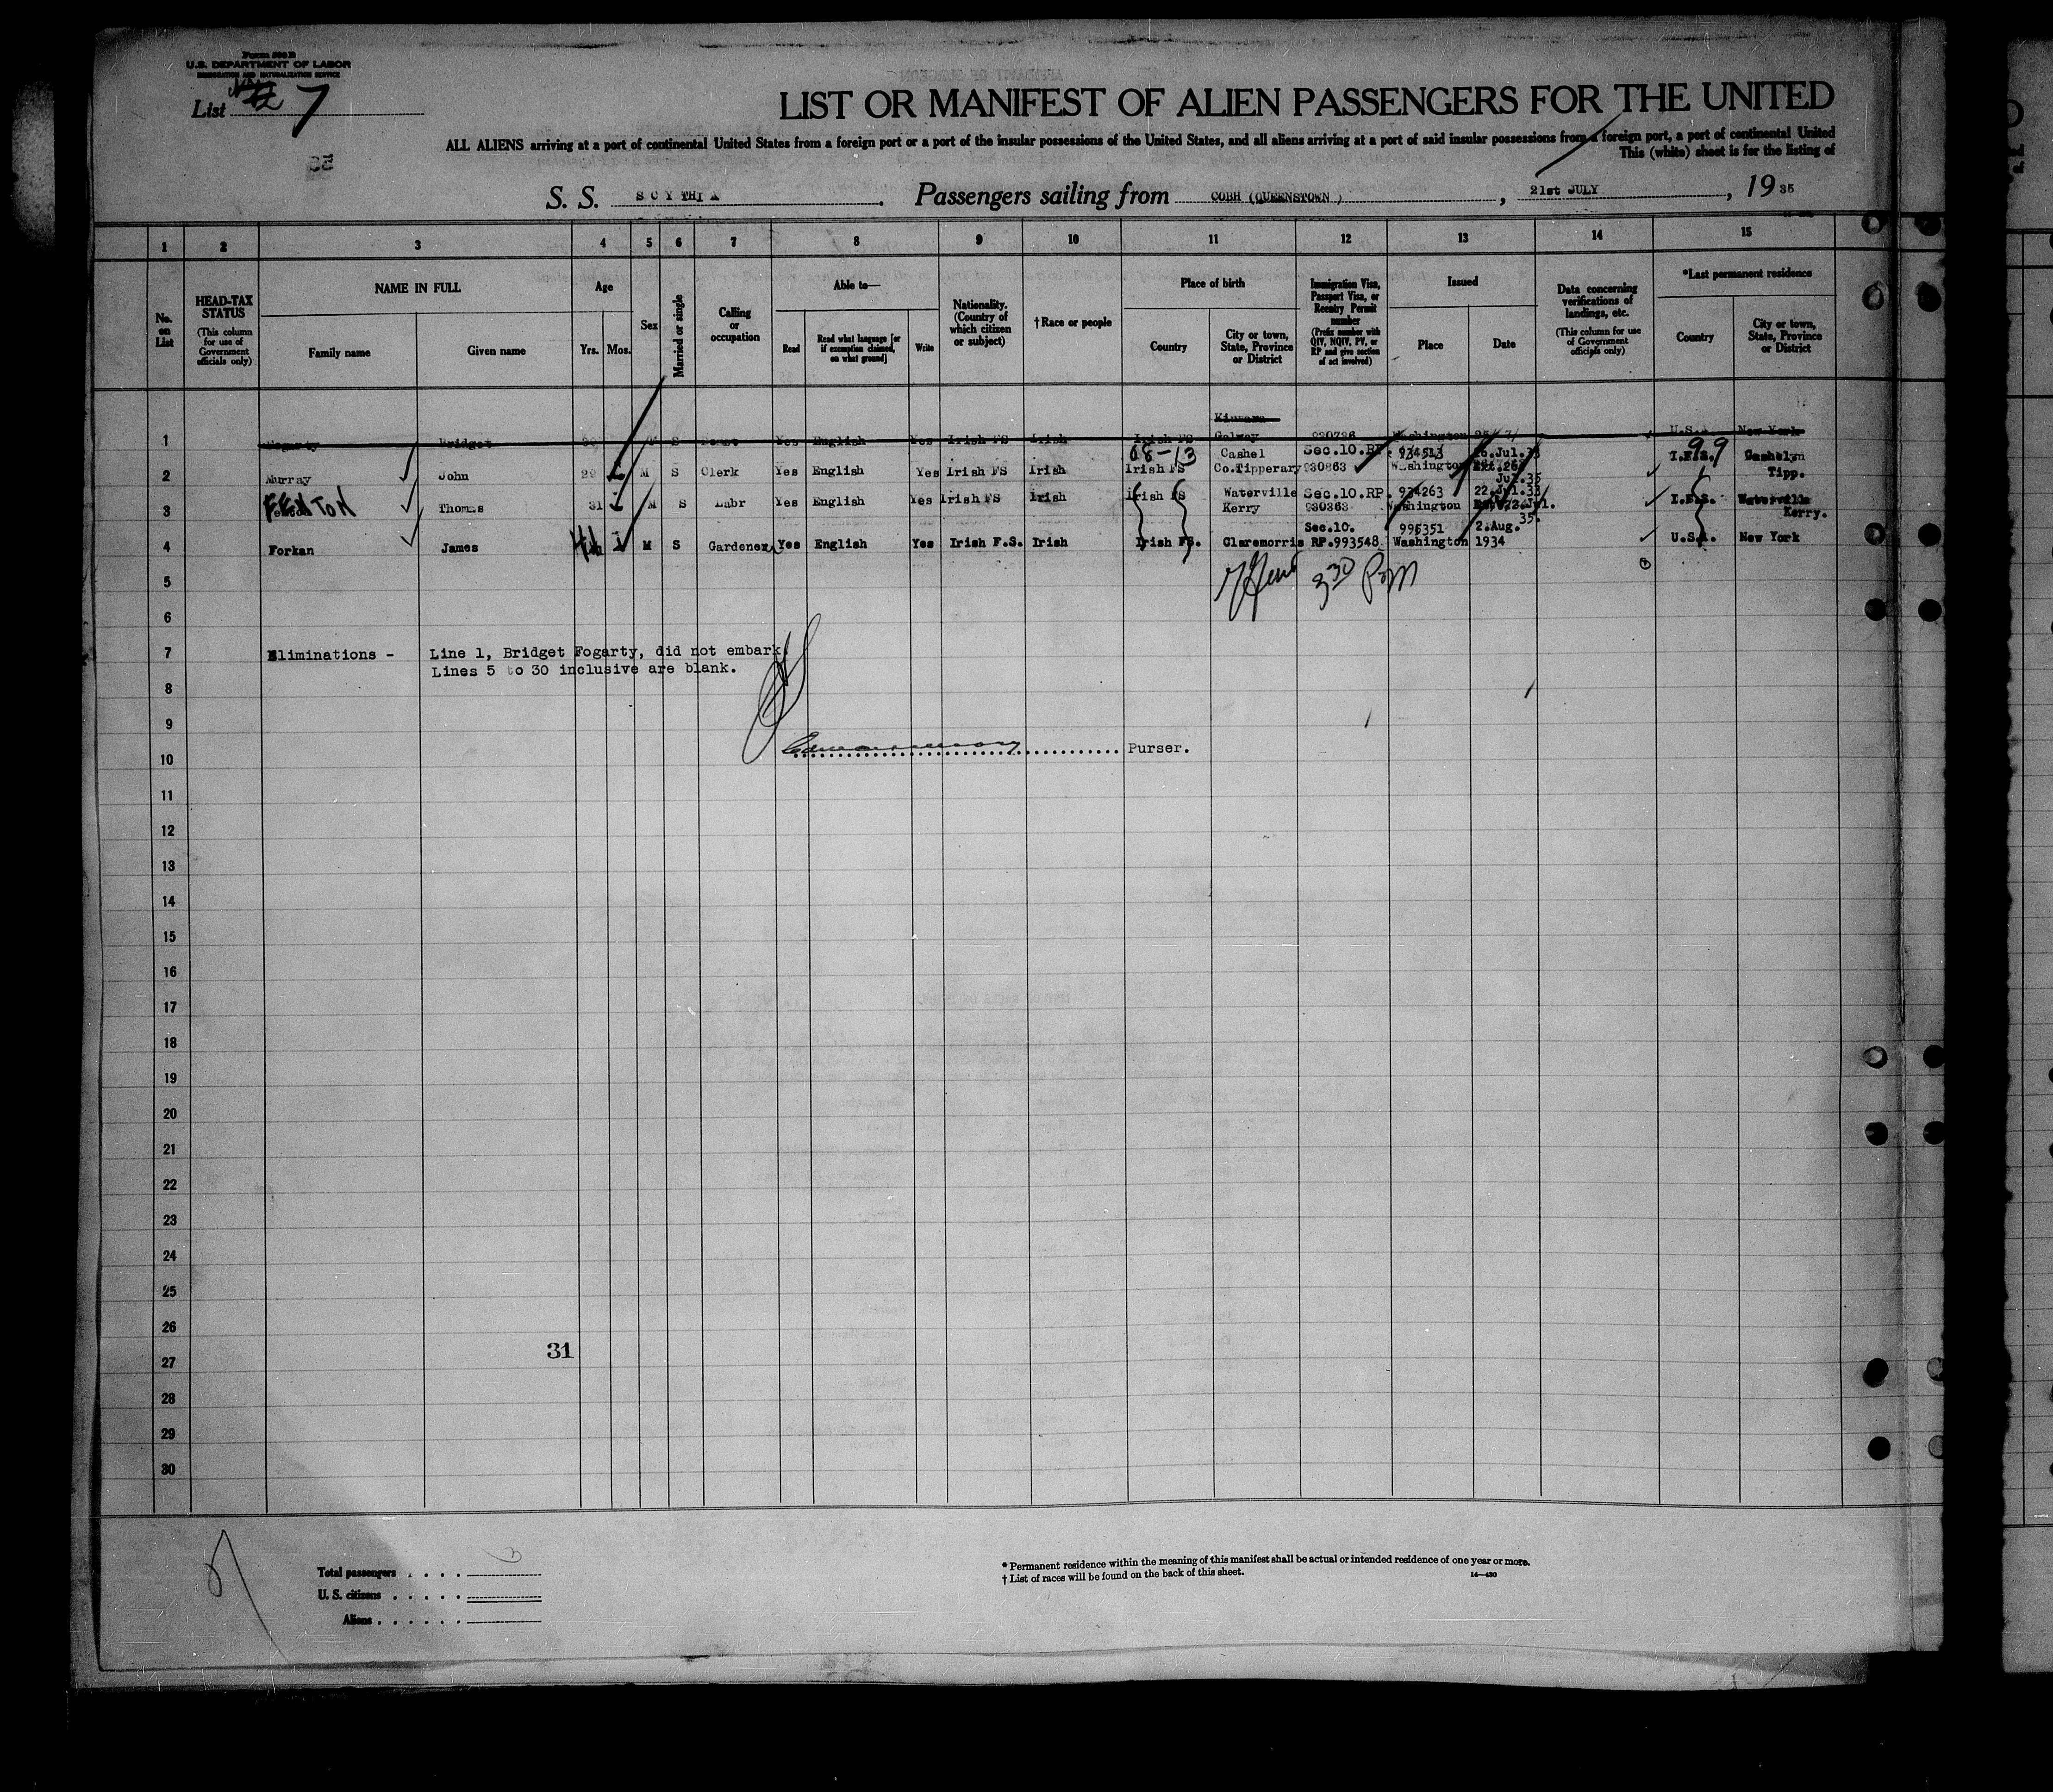 Form 500 B
U.S. DEPARTMENT OF LABOR
IMMIGRATION AND NATURALIZATION SERVICE
List 7
LIST OR MANIFEST OF ALIEN PASSENGERS FOR THE UNITED
ALL ALIENS arriving at a port of continental United States from a foreign port or a port of the insular possessions of the United States, and all aliens arriving at a port of said insular possessions from a foreign port, a port of continental United
This (white) sheet is for the listing of
S. S. SCYTHIA. Passengers sailing from COBH (QUEENSTOWN), 21st JULY, 1935
1 2 3 4 5 6 7 8 9 10 11 12 13 14 15
No. on List
HEAD-TAX STATUS
(This column for use of Government officials only)
NAME IN FULL
Family name
Given name
Age
Yrs.
Mos.
Sex
Married or single
Calling or occupation
Able to—
Read
Read what language [or if exemption claimed, on what ground]
Write
Nationality. (Country of which citizen or subject)
†Race or people
Place of birth
Country
City or town, State, Province or District
Immigration Visa, Passport Visa, or Reentry Permit number
(Prefix number with QIV, NQIV, PV, or RP and give section of act involved)
Issued
Place
Date
Data concerning verifications of landings, etc.
(This column for use of Government officials only)
*Last permanent residence
Country
City or town, State, Province or District
Kinvara
1 Fogarty Bridget S Yes English Yes Irish FS Irish Irish FS Galway 930736 Washington U.S.A. New York
68-13 Cashel Sec.10.RP. 934513 99
2 Murray John 29 M S Clerk Yes English Yes Irish FS Irish Irish FS Co.Tipperary 930863 Washington I.F.S. Cashel
Tipp.
Jul.35
FENTON Waterville Sec.10.RP. 934263 22.Jul.33
3 Thomas 31 M S Labr Yes English Yes Irish FS Irish Irish FS Kerry 930363 Washington I.F.S. Waterville
Kerry.
35.
Sec.10. 995351 2.Aug.
4 Forkan James M S Gardener Yes English Yes Irish F.S. Irish Irish FS. Claremorris RP.993548 Washington 1934 U.S.A. New York
3 30 PM
5
6
7 Eliminations - Line 1, Bridget Fogarty, did not embark
Lines 5 to 30 inclusive are blank.
8
9
Purser.
10
11
12
13
14
15
16
17
18
19
20
21
22
23
24
25
26
31
27
28
29
30
Total passengers
U. S. citizens
Aliens
* Permanent residence within the meaning of this manifest shall be actual or intended residence of one year or more.
† List of races will be found on the back of this sheet.
14—430